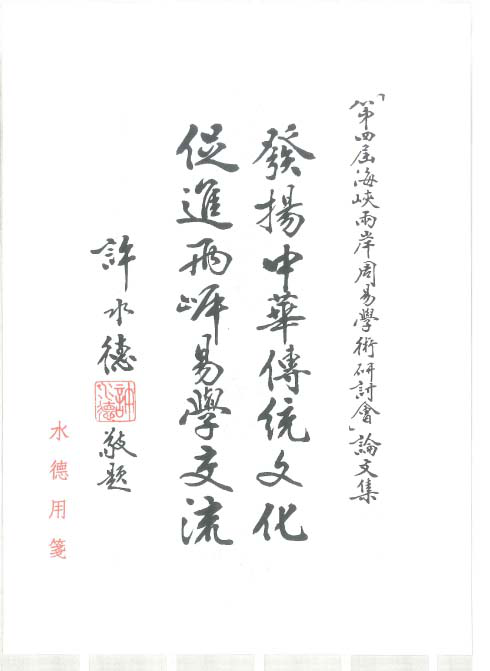 「第四屆海峽兩岸周易學術研討會」論文集
發揚中華傳統文化
促進兩岸易學交流
許水德
許水德
敬題
水德用箋